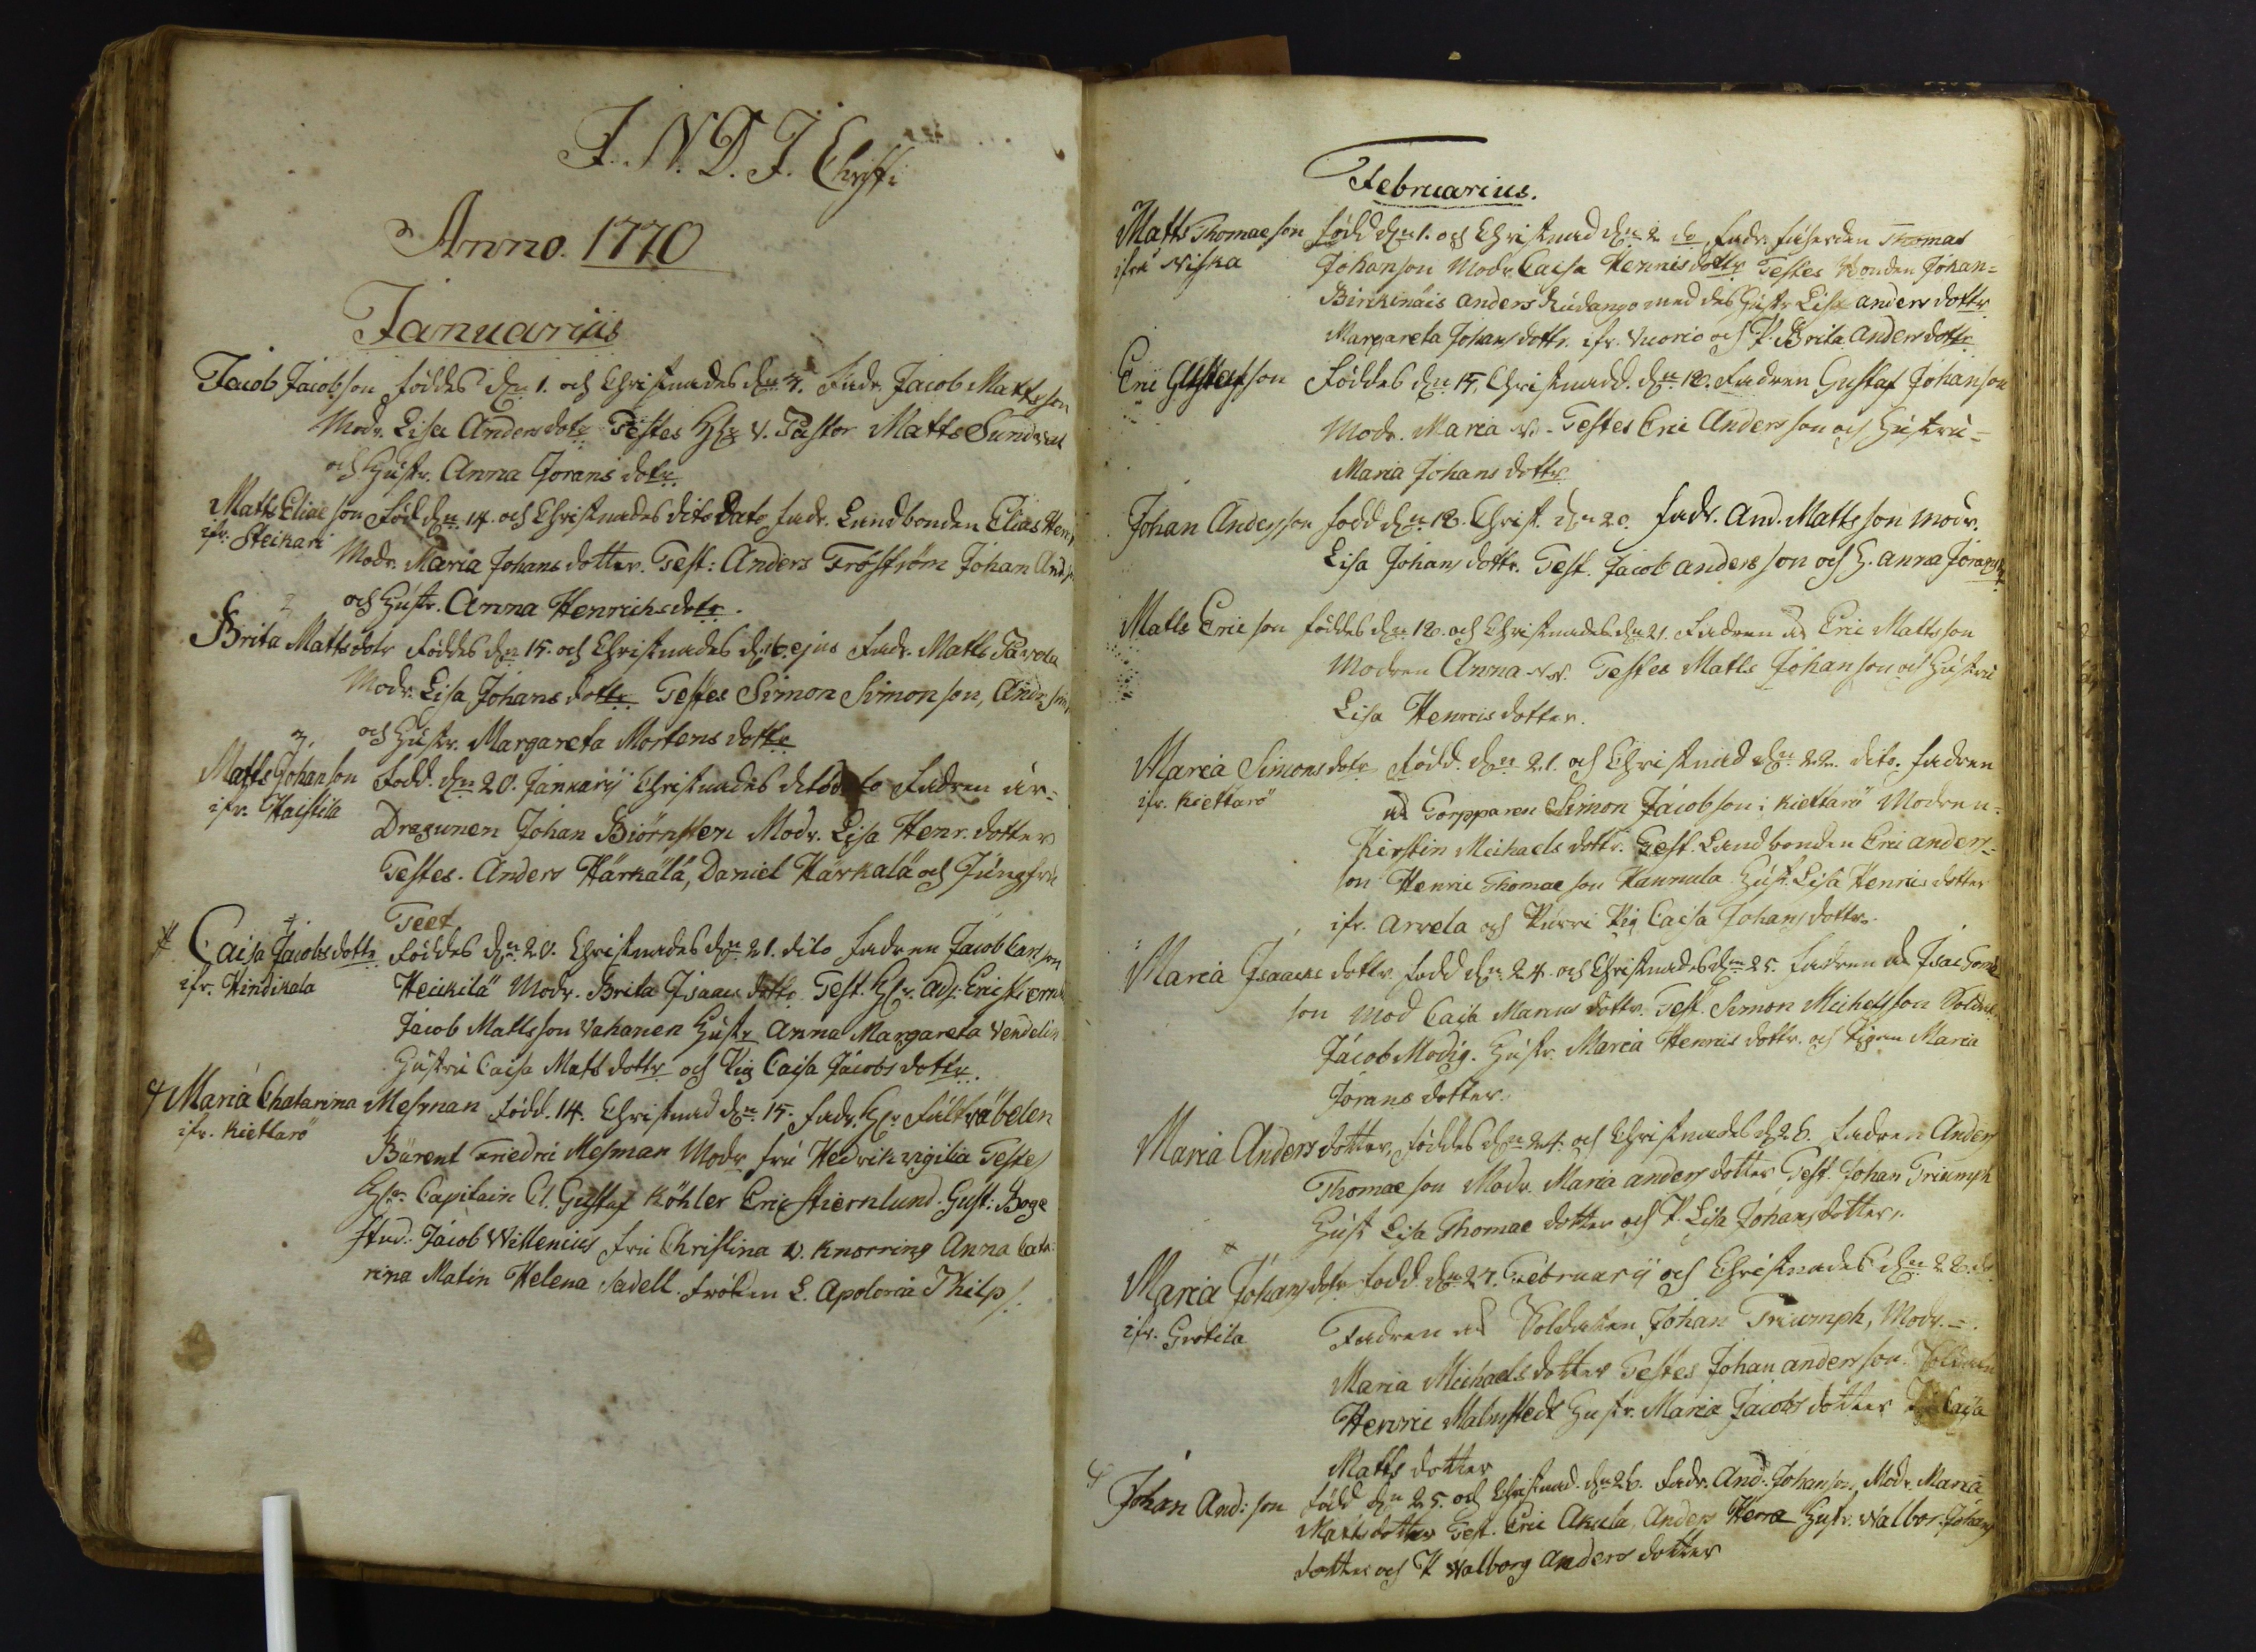 I. N. D. J. Christi
Anno. 1770
Januarius
Jacob Jacobson föddes dn 1. och Christnades dn 7. Fadr. Jacob Mattsson
Modr. Lisa Andersdotr Testes Hr V. Pastor Matts Sundvat
och Hustr. Anna Jorans dotr.
Matts Eliae son Född dn 14. och Christnades dito Dato Fadr. Landbonden Elias Henr
ifr. Steikari
Modr. Maria Johans dotter. Test: Anders Fröström Johan Ands
och Hustr. Anna Henrichsdotr.
2
Brita Mattsdotr föddes dn 15. och Christnades d. 16. ejus Fadr. Matts Pavola
Modr. Lisa Johans dottr. Testes Simon Simonson, Andr.
och Hustr. Margareta Mortens dottr
3.
Matts Johanson Född. dn 20. Januarij Christnades dito dato Fadren är-
ifr. Haistila
Dragunen Johan Biörnsten Modr. Lisa Henr. dotter
Testes. Anders Härkälä, Daniel Härkälä och Jungfru
Teet
# Caisa Jacobsdottr föddes dn 20. Christnades dn 21. dito Fadren Jacob Carlson
ifr. Hindikala
Heickilä Modr. Brita Isaacs dottr Test. Hr Adj. Eric Stiern
Jacob Matts son Vahanen Hustr Anna Margareta Vendelin
Hustru Caisa Mats dottr och Pig Caisa Jacobs dottr.
4 Maria Chatarina Mesman född. 14. Christnad dn 15. Fadr. Hr Fältväbelen
ifr. Kiettarö
Bärent Friedric Mesman Modr fru Hedvik vigilia Testes
Hr Capitain C. Gustaf Köhler Eric Stiernlund. Gust: Boge
Stud: Jacob Willenius fru Christina v. Knorring Anna Cata-
rina Malin Helena Sadell. fröken L. Apolonia Thilp
Februarius.
Matts Thomae son född dn 1. och Christnad dn 2 do Fadr. Fisherden Thomas
ifrå Niska
Johanson Modr. Caisa Henrisdottr Testes Bonden Johan-
Birikinäis Anders Rudango med des Hustr Lisa Anders dottr
Margareta Johans dottr. ifr. Vuorio och P. Brita Andersdottr
Eric Gustafson Föddes dn 15. Christnadd. dn 18. Fadren Gustaf Johanson
Modr. Maria N. - Testes Eric Anders son och Hustru-
Maria Johans dottr
Johan Andersson född dn 18. Christ. dn 20. Fadr. And. Matts son Modr.
Lisa Johans dottr. Test. Jacob Anders son och H. Anna Jorans
Matts Eric son föddes dn 18. och Christnades dn 21. Fadren är Eric Mattsson
Modren Anna N.N. Testes Matts Johanson och Hustru
Lisa Henris dotter.
Maria Simonsdotr Född. dn 21. och Christnad dn 22. dito. Fadren
ifr. Kiettarö
är Torpparen Simon Jacobson i Kiettarö Modren-
Kirstin Michaels dottr. Test. Landbonden Eric Anders-
son Henric Thomae son Hannula Hust. Lisa Henris dotter
ifr. Arvela och Purri Pig Caisa Johans dottr.
Maria Isaacs dottr född dn 24. och Christnades dn 25. Fadren är Isac
son Mod Caisa Marcus dottr. Test. Simon Michelsson Soldat
Jacob Modig. Hustr. Maria Henris dottr. och Pigan Maria
Jorans dotter.
Maria Anders dotter föddes dn 24. och Christnades d 26. Fadren Anders
Thomae son Modr. Maria Anders dotter Test. Johan Triumph
Hust Lisa Thomae dotter och P. Lisa Johans dotter.
Maria Johans dotr Född. dn 27. Februarij och Christnades dn 28. do
ifr. Grotila
Fadren är Soldaten Johan Triumph, Modr. -
Maria Michaels dotter Testes Johan Andersson. Soldaten
Henric Malmstedt Hustr. Maria Jacobs dotter Pig Caisa
Matts dotter
Johan And: son född dn 25. och Christnad. dn 26. Fadr. And: Johanson Modr. Maria
Matts dotter Test. Eric Aksula, Anders Herra Hustr. Walbor. Johans
dotter och P Walborg Anders dotter